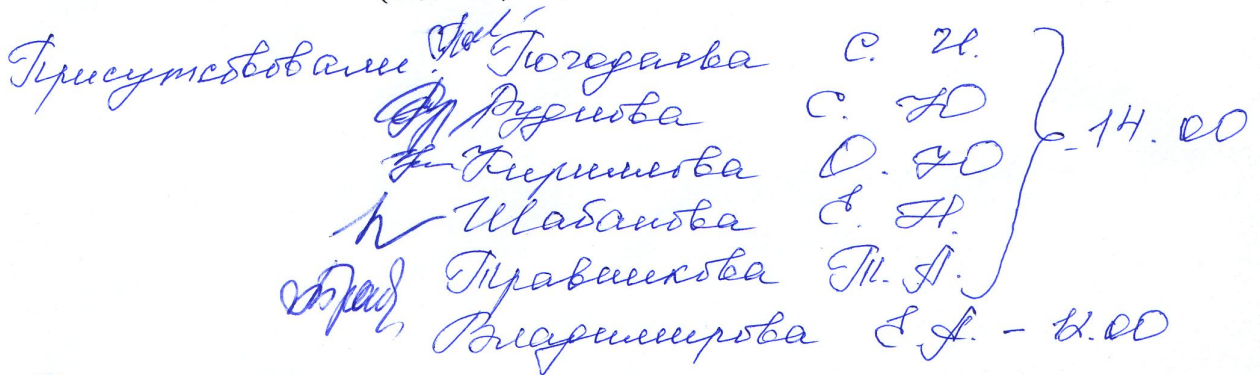 Присутствовали: Погодаева С. Н.
Руднова С. Ю
Кириллова О. Ю
Шабанова Е. Н.
Травникова Т. А. - 14.00
Владимирова Е.А. - 12.00